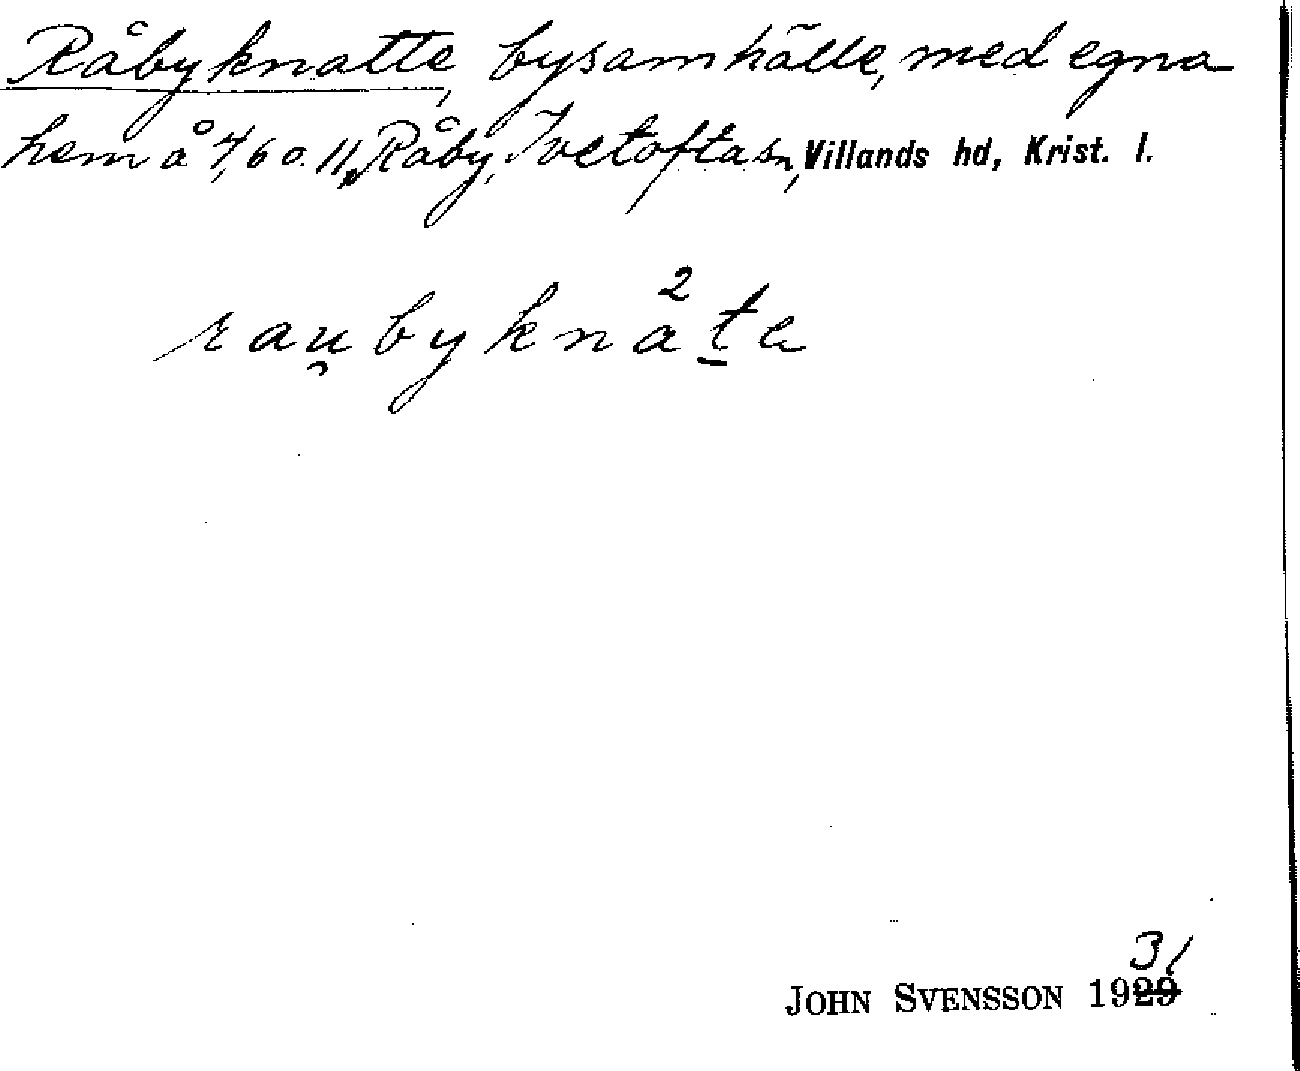 Råbyknatte, bysamhälle, med egna
hem å 4, 6 o. 11, Råby, Ivetofta sn, Villands hd, Krist. l.
rau̯bykna2t̲e
JOHN SVENSSON 1929 31